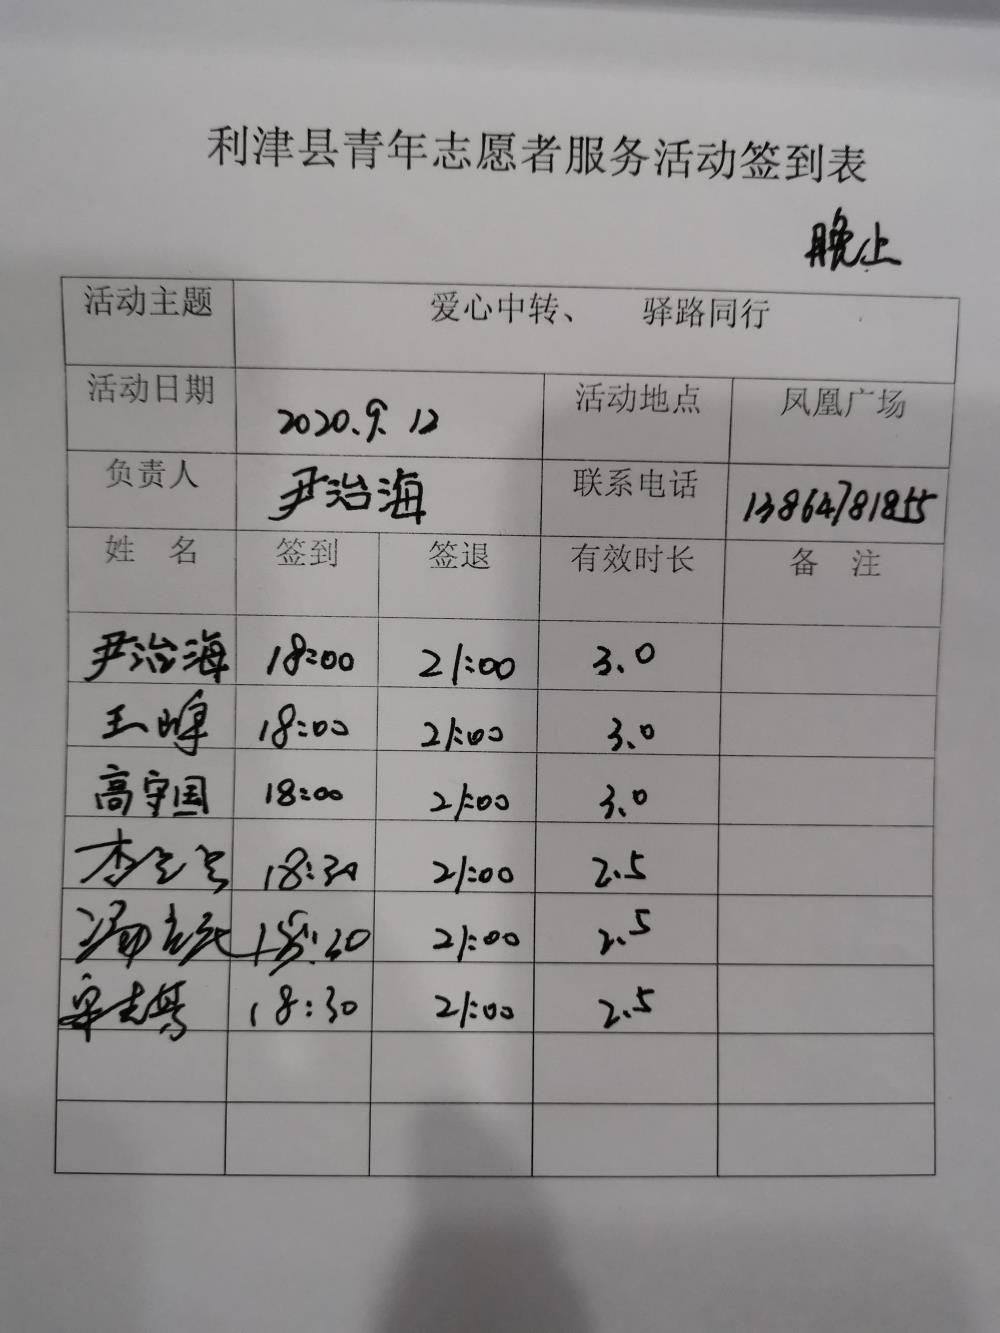 利津县青年志愿者服务活动签到表
晚上
活动主题 爱心中转、 驿路同行
活动日期 2020.9.12 活动地点 凤凰广场
负责人 尹治海 联系电话 13864781855
姓 名 签到 签退 有效时长 备 注
尹治海 18:00 21:00 3.0
王峰 18:00 21:00 3.0
高守国 18:00 21:00 3.0
18:30 21:00 2.5
18:30 21:00 2.5
18:30 21:00 2.5